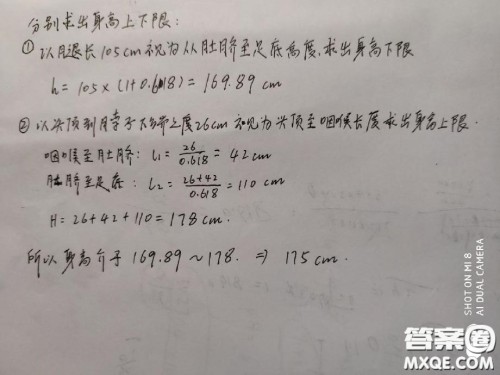 分别求出身高上下限:
① 以腿长105cm视为从肚脐至足底高度,求出身高下限
h=105×(1+0.618)=169.89 cm
② 以头顶到脖子下端之度26cm视为头顶至咽喉长度求出身高上限.
咽喉至肚脐: l₁=26/0.618=42cm
肚脐至足底: l₂=(26+42)/0.618=110 cm
H=26+42+110=178cm.
所以身高介于169.89~178. ⇒ 175cm.
SHOT ON MI 8
AI DUAL CAMERA
答案圈
MXQE.COM